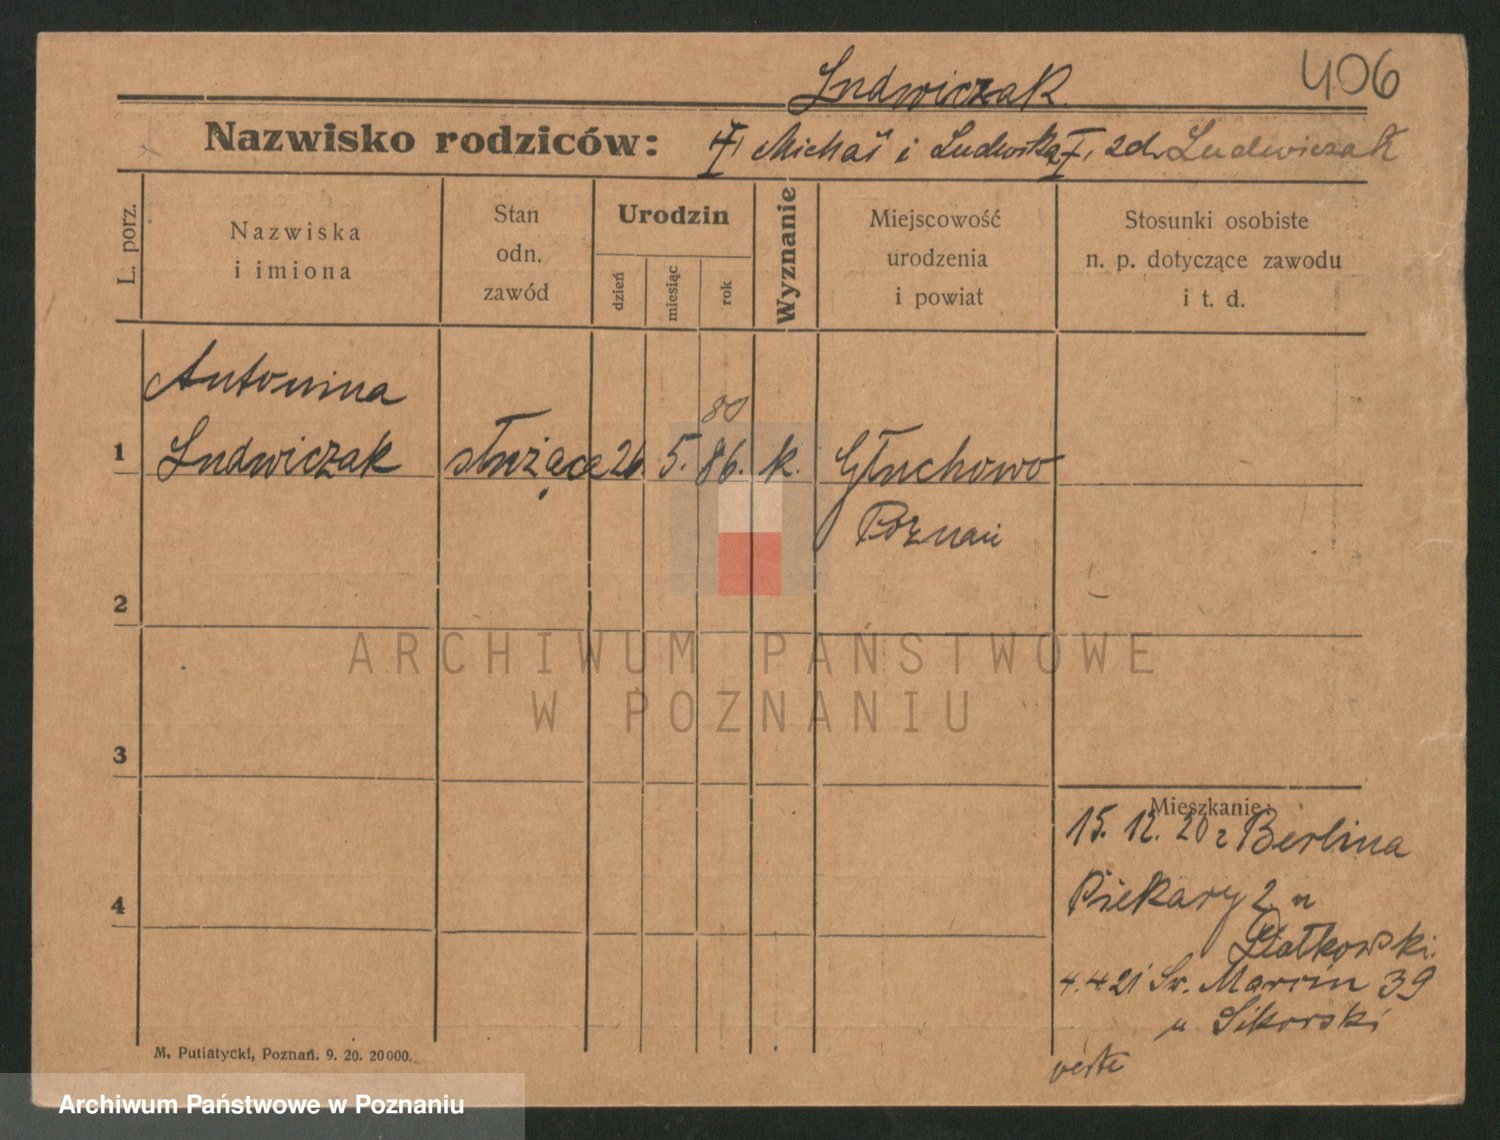 Ludwiczak
406
Nazwisko rodziców: Michał i Ludwika, zd. Ludwiczak
L. porz.
Nazwiska
i imiona
Stan
odn.
zawód
Urodzin
dzień
miesiąc
rok
Wyznanie
Miejscowość
urodzenia
i powiat
Stosunki osobiste
n. p. dotyczące zawodu
i t. d.
Antonina
80
1 Ludwiczak służąca 26. 5. 86. k. Głuchowo
Poznań
2
ARCHIWUM PAŃSTWOWE
W POZNANIU
3
Mieszkanie:
15. 12. 20 z Berlina
4
Piekary 2 u
4.4.21 Św. Marcin 39
u Sikorski
verte
M. Putiatycki, Poznań. 9. 20. 20000.
Archiwum Państwowe w Poznaniu